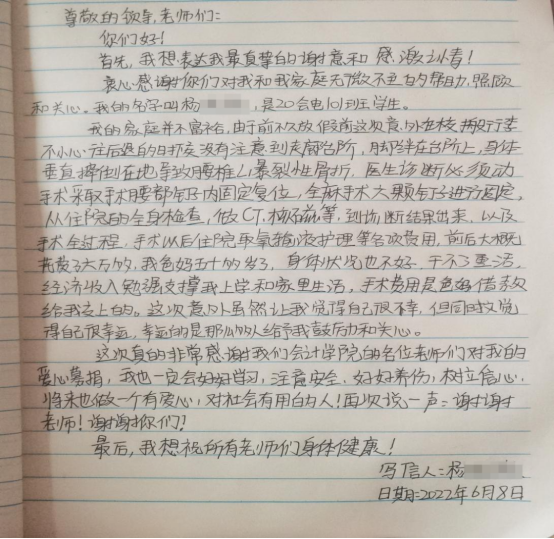 尊敬的领导,老师们:
你们好!
首先,我想表达我最真挚的谢意和感激之情!
衷心感谢你们对我和我家庭无微不至的帮助,照顾
和关心。我的名字叫杨,是20会电101班学生。
我的家庭并不富裕,由于前不久放假前这次意外在校搬行李
不小心往后退的时候没有注意到夹廊台阶,脚绊在台阶上,身体
垂直摔倒在地导致腰椎L1暴裂性骨折,医生诊断必须动
手术采取手术腰部钉子内固定复位,全麻手术大颗钉子进行固定,
从住院的全身检查,做CT,核磁等,到诊断结果出来,以及
手术全过程,手术以后住院取氧输液护理等各项费用,前后大概
花费了六万多,我爸妈五十的岁了,身体状况也不好,干不了重活,
经济收入勉强支撑我上学和家里生活,手术费用是爸妈借款
给我交上的。这次意外虽然让我觉得自己很不幸,但同时又觉
得自己很幸运,幸运的是那么多人给予我鼓励和关心。
这次真的非常感谢我们会计学院的各位老师们对我的
爱心募捐,我也一定会好好学习,注意安全,好好养伤,树立信心,
将来也做一个有爱心,对社会有用的人!再次说一声:谢谢
老师!谢谢你们!
最后,我想祝所有老师们身体健康!
写信人:杨
日期:2022年6月8日